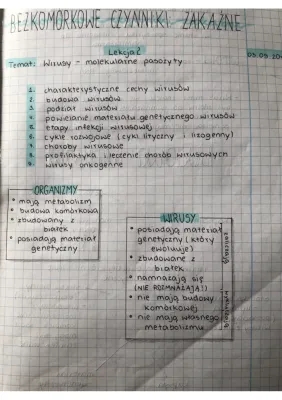 BEZKOMÓRKOWE CZYNNIKI ZAKAŹNE
Lekcja 2
Temat: Wirusy - molekularne pasożyty
1. charakterystyczne cechy wirusów
2. budowa wirusów
3. podział wirusów
4. powielanie materiału genetycznego wirusów
5. etapy infekcji wirusowej
6. cykle rozwojowe (cykl lityczny i lizogenny)
7. choroby wirusowe
8. profilaktyka i leczenie chorób wirusowych
9. wirusy onkogenne
ORGANIZMY
• mają metabolizm
• budowa komórkowa
• zbudowany z
białek
• posiadają materiał
genetyczny
WIRUSY
• posiadają materiał
genetyczny (który
ewoluuje)
• zbudowane z
białek
• namnażają się
(NIE ROZMNAŻAJĄ!)
• nie mają budowy
komórkowej
• nie mają własnego
metabolizmu